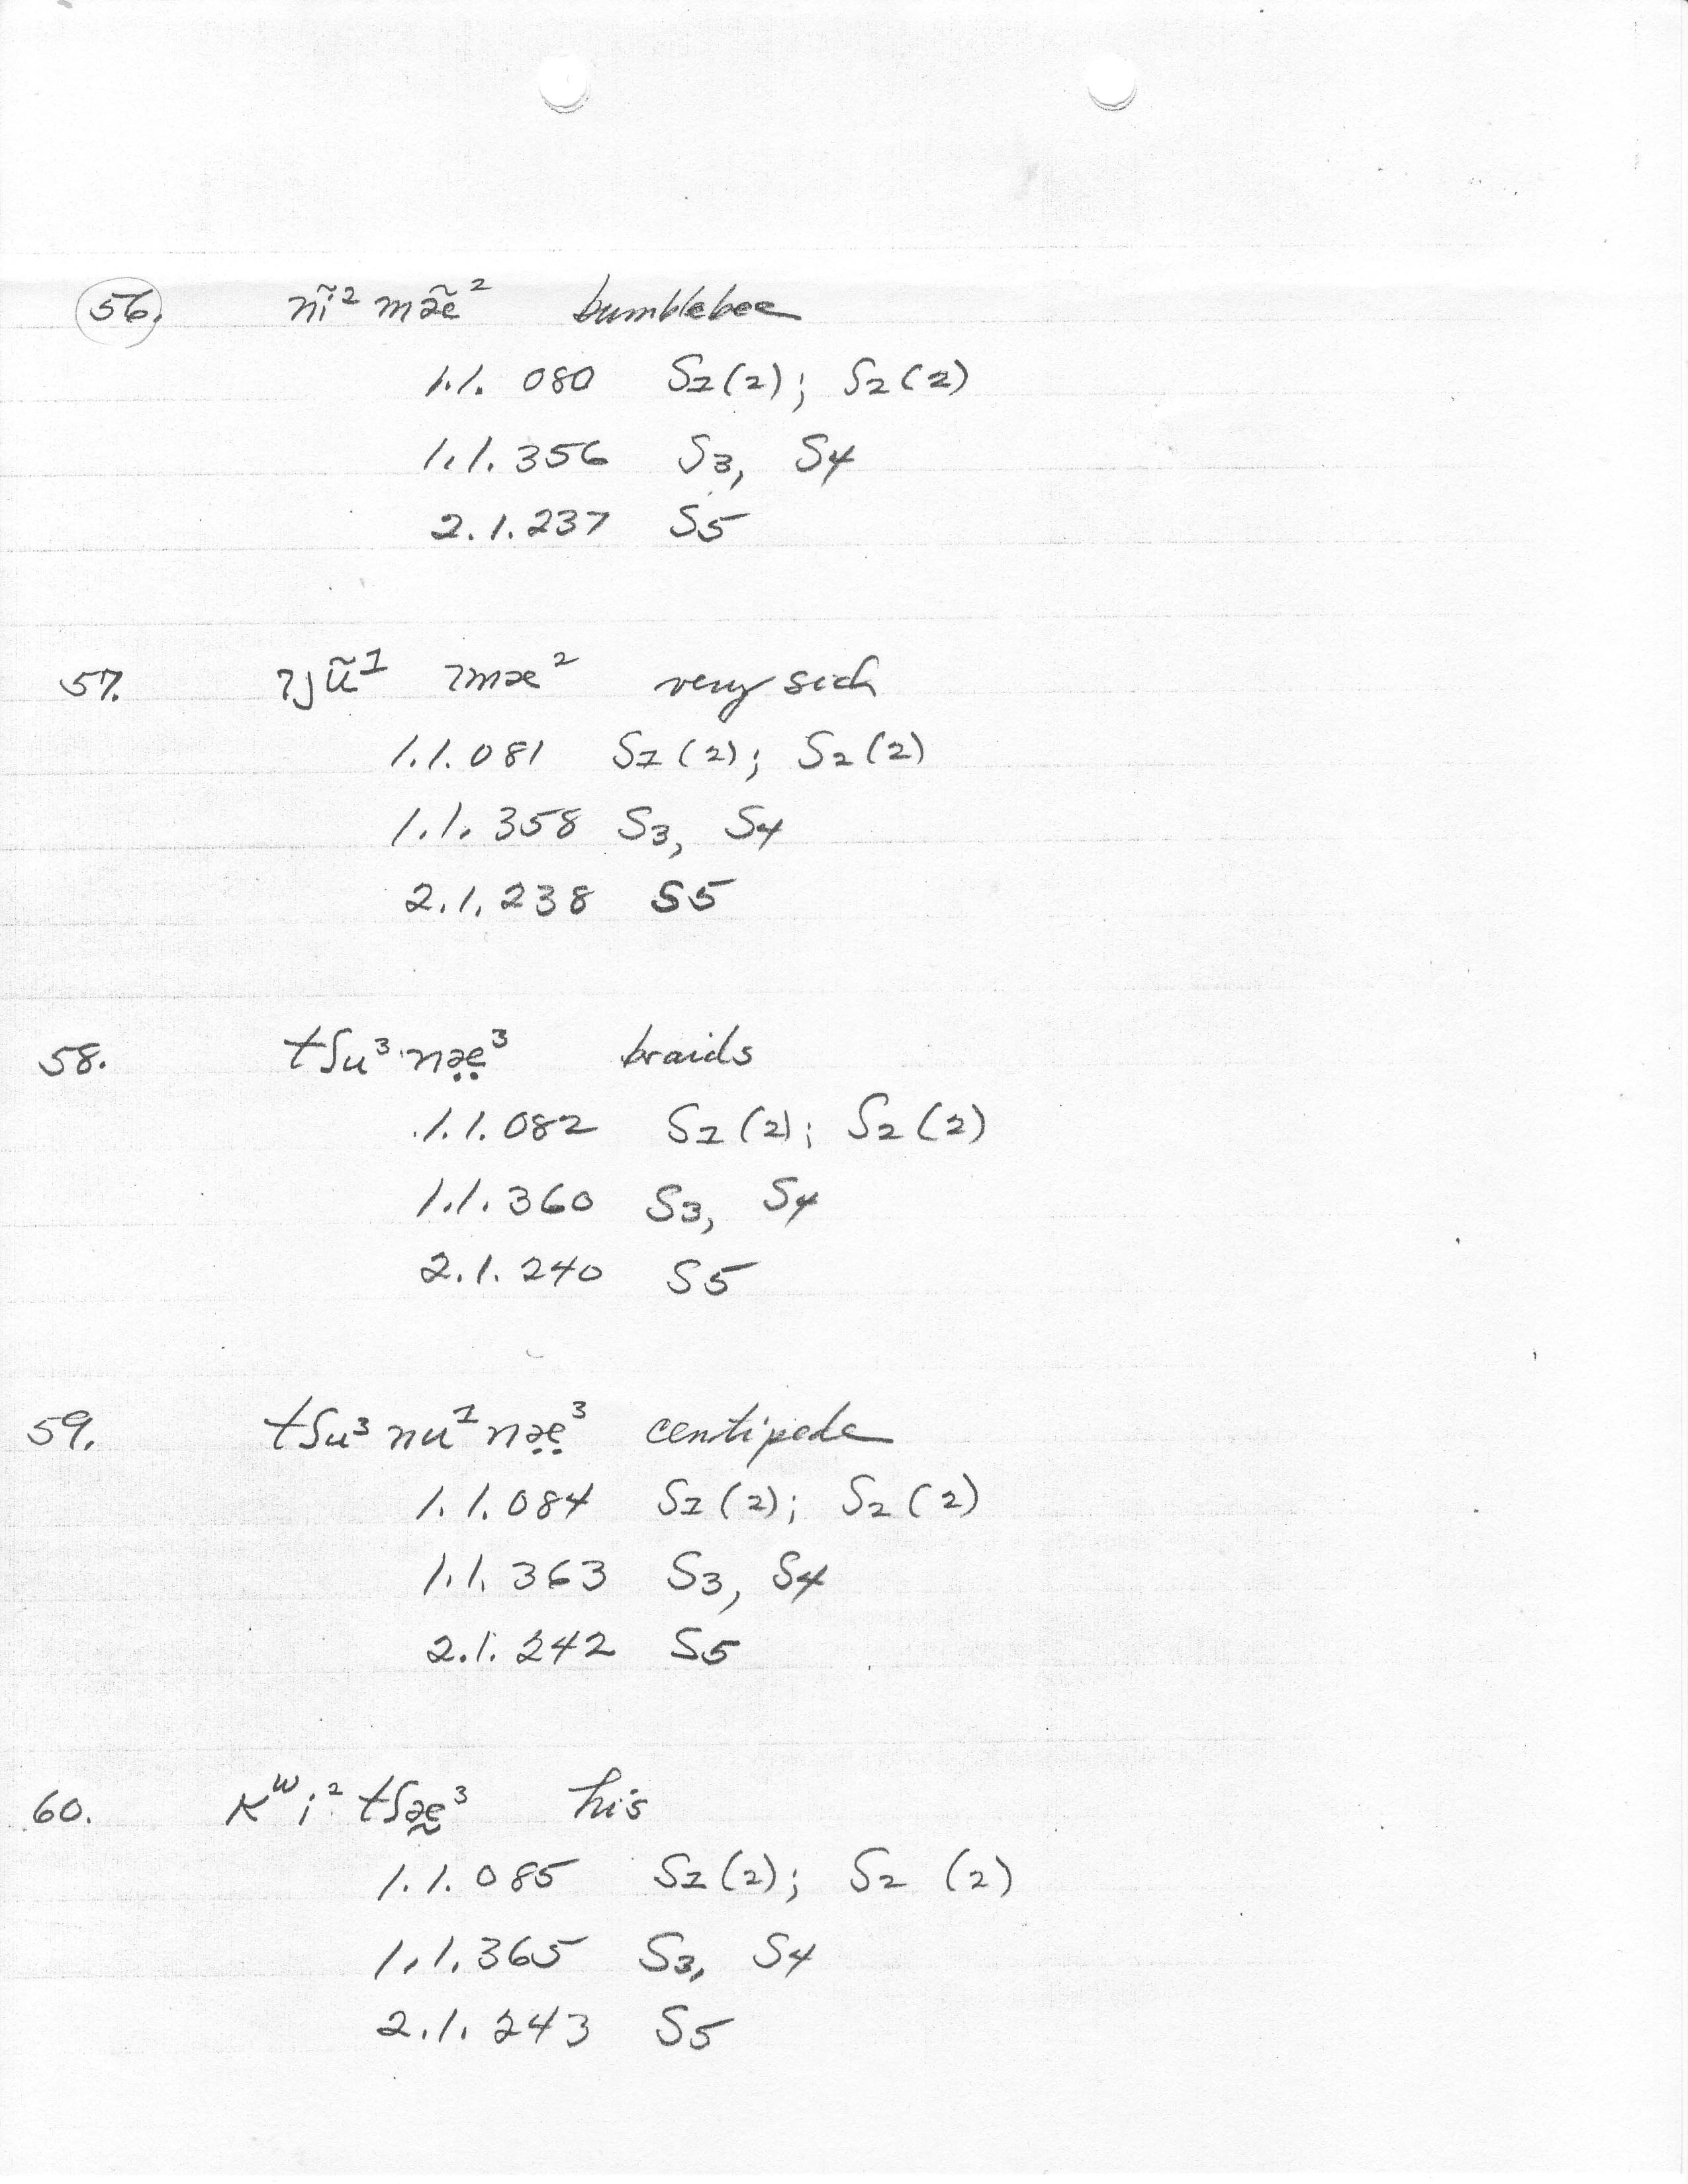 56. nĩ² mæ̃² bumblebee
1.1.080 S1(2); S2(2)
1.1.356 S3, S4
2.1.237 S5
57. ʔjũ¹ ʔmæ² very sick
1.1.081 S1(2); S2(2)
1.1.358 S3, S4
2.1.238 S5
58. tʃu³ næ̤³ braids
1.1.082 S1(2); S2(2)
1.1.360 S3, S4
2.1.240 S5
59. tʃu³ nu¹ næ̤³ centipede
1.1.084 S1(2); S2(2)
1.1.363 S3, S4
2.1.242 S5
60. kʷi² tʃæ̰³ his
1.1.085 S1(2); S2(2)
1.1.365 S3, S4
2.1.243 S5